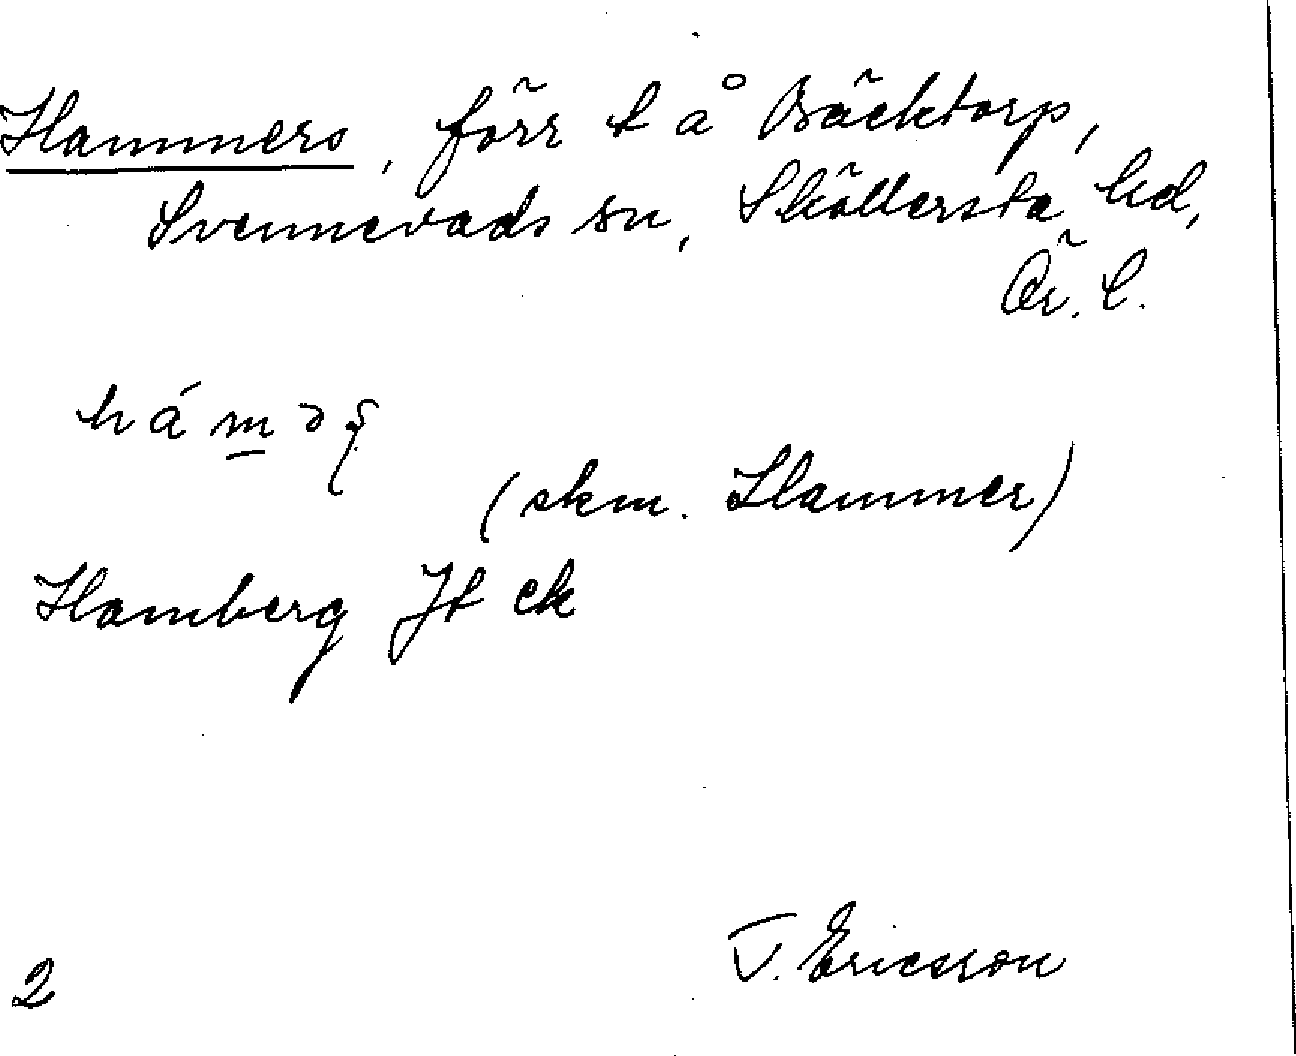 Hammers, förr t å Bäcktorp,
Svennevads sn, Sköllersta hd,
Ör. l.
hámə
(skm. Hammer)
Hamberg Jt ek
T. Ericsson
2